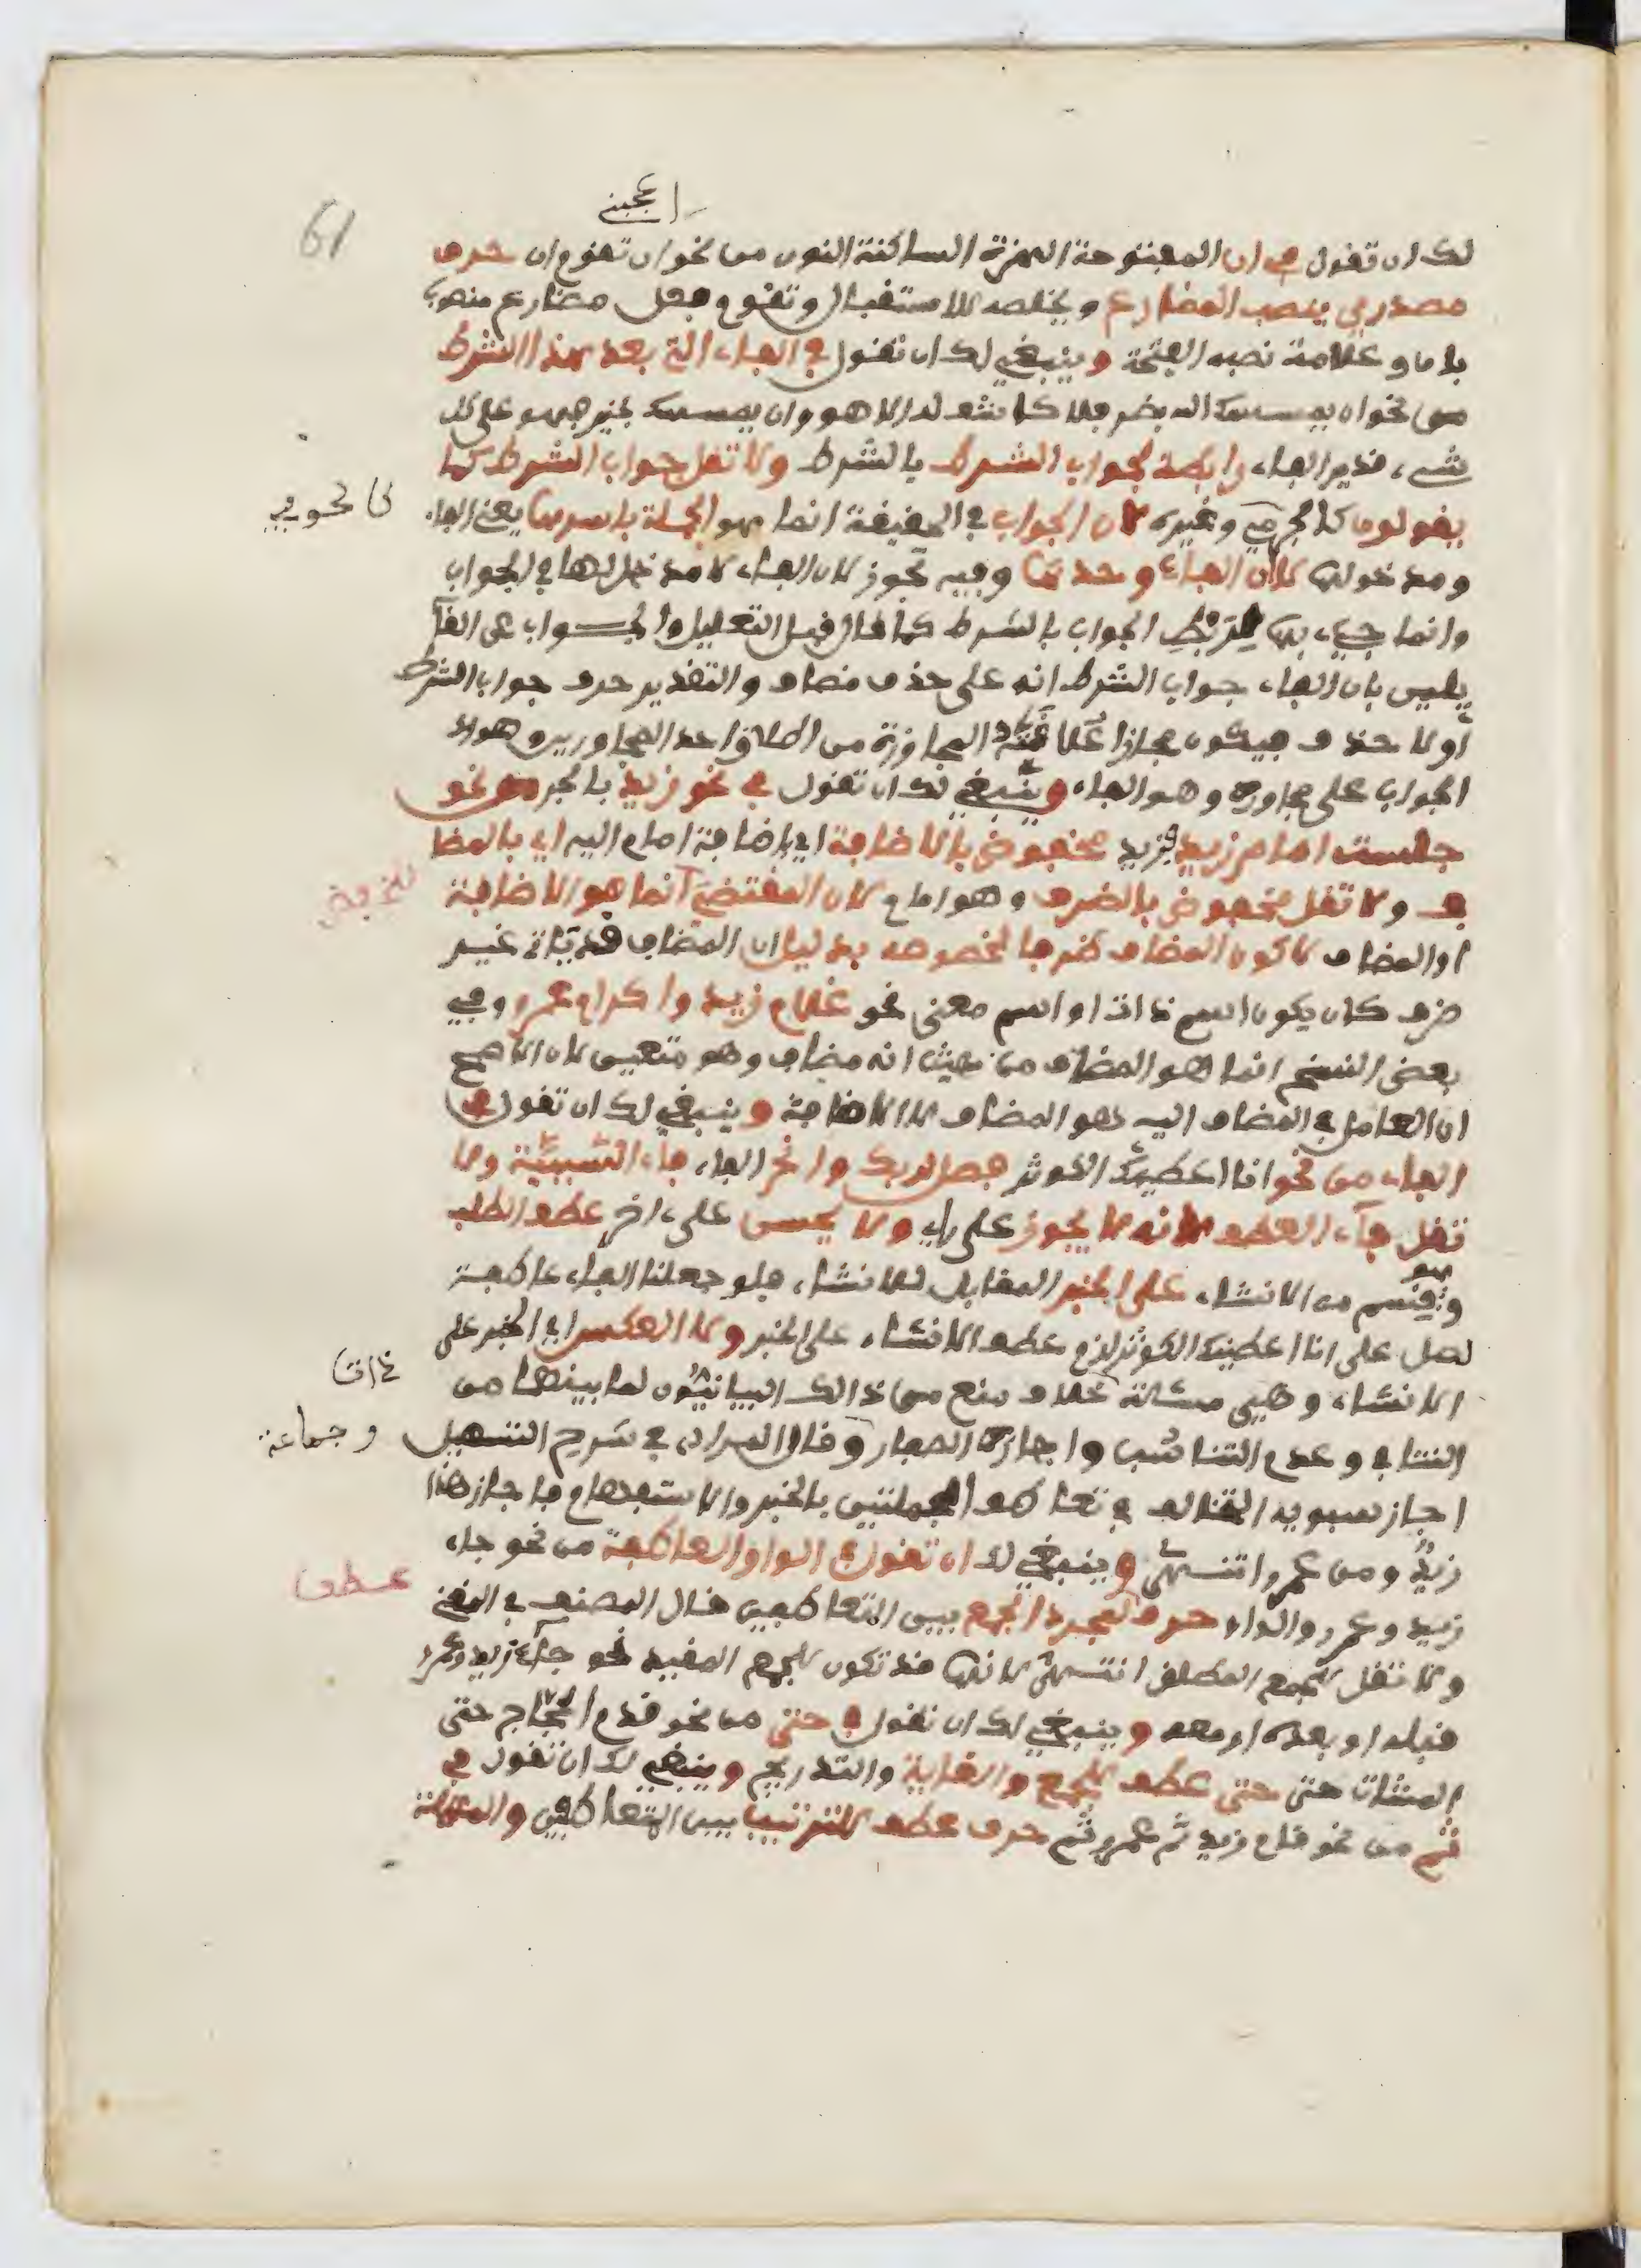 اعجبني
61
لك ان تقول في ان المفتوحة الهمزة الساكنة النون من نحو ان تقوم ان حرف
مصدري ينصب المضارع ويخلصه للاستقبال وتقوم فعل مضارع منصوب
بان وعلامة نصبه الفتحة وينبغي لك ان تقول في الفاء التي بعد هذا الشرط
من نحو ان يمسسك الله بضر فلا كاشف له الا هو وان يمسسك بخير فهو على كل
شيء قدير الفاء رابطة لجواب الشرط بالشرط ولا تقل جواب الشرط كما
يقولون كالحوفي وغيره لان الجواب في الحقيقة انما هو الجملة باسرها يعني الفاء
كالحوفي
ومدخولها لا ان الفاء وحدها وفيه تجوز لان الفاء لا مدخل لها في الجواب
وانما جيء بها لتربط الجواب بالشرط كما قال قبل التعليل والجواب عن القا
يلين بان الفاء جواب الشرط انه على حذف مضاف والتقدير حرف جواب الشرط
او لا حذف فيكون مجازا علاقته المجاورة من اطلاق احد المجاورين وهو
الجواب على مجاوره وهو الفاء وينبغي لك ان تقول في نحو زيد بالجر من نحو
جلست امام زيد فزيد مخفوض بالاضافة اي باضافة امام اليه اي بالمضا
ف ولا تقل مخفوض بالظرف وهو امام لان المقتضي انما هو الاضافة
للخفض
او المضاف لا كون المضاف ظرفا لخصوصه بدليل ان المضاف قد ياتي غير
ظرف كان يكون اسم ذات او اسم معنى نحو غلام زيد واكرام عمرو وفي
بعض النسخ انما هو المضاف من حيث انه مضاف وهو متعين لان الاصح
ان العامل في المضاف اليه هو المضاف لا الاضافة وينبغي لك ان تقول في
الفاء من نحو انا اعطيناك الكوثر فصل لربك وانحر الفاء فاء السببية ولا
تقل فاء العطف لانه لا يجوز على راي ولا يحسن على اخر عطف الطلب
وهو قسم من الانشاء على الخبر المقابل للانشاء فلو جعلنا الفاء عاطفة
لصل على انا اعطيناك الكوثر لزم عطف الانشاء على الخبر ولا العكس اي الخبر على
الانشاء وهي مسئلة خلاف منع من ذالك البيانيون لما بينهما من
ذات
التنافي وعدم التناسب واجازه الصفار وقال المرادي في شرح التسهيل
وجماعة
اجاز سيبويه التخالف في تعاطف الجملتين بالخبر والاستفهام فاجاز هذا
زيد ومن عمرو انتهى وينبغي لك ان تقول في الواو العاطفة من نحو جاء
زيد وعمرو الواو حرف لمجرد الجمع بين المتعاطفين قال المصنف في المغني
عطف
ولا تقل للجمع المطلق انتهى لانها قد تكون للجمع المقيد نحو جاء زيد وعمرو
قبله او بعده او معه وينبغي لك ان تقول في حتى من نحو قدم الحجاج حتى
المشاة حتى حتى عطف للجمع والغاية والتدريج وينبغي لك ان تقول في
ثم من نحو قام زيد ثم عمرو ثم حرف عطف للترتيب بين المتعاطفين والمهلة